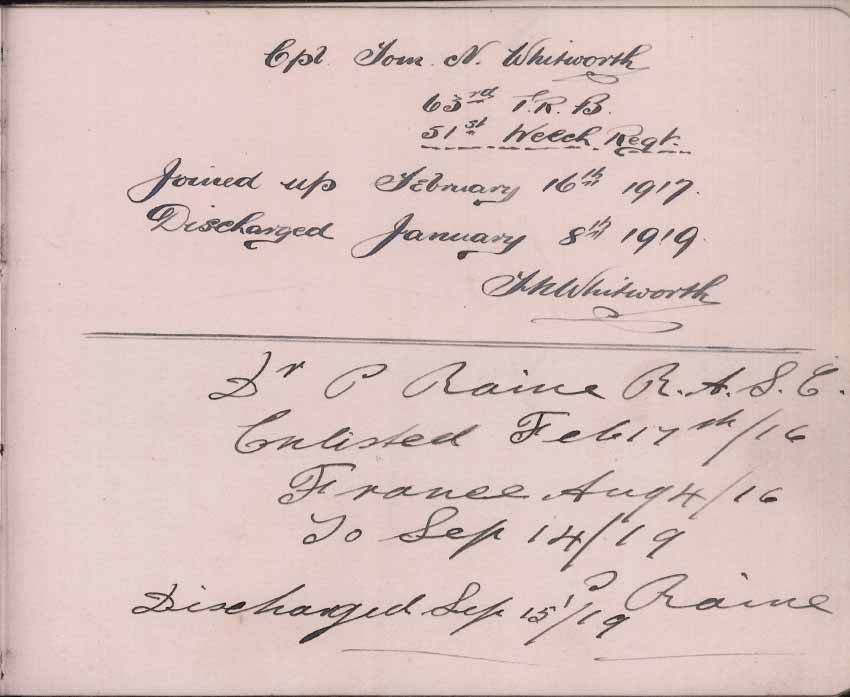 Cpl Tom. N. Whitworth
63rd T.R.B.
51st Welch Regt.
Joined up February 16th 1917.
Discharged January 8th 1919.
T.N.Whitworth
Dr P Raine R.A.S.C.
Enlisted Feb 17th/16
France Aug 4/16
To Sep 14/19
Discharged Sep 15/19 P Raine